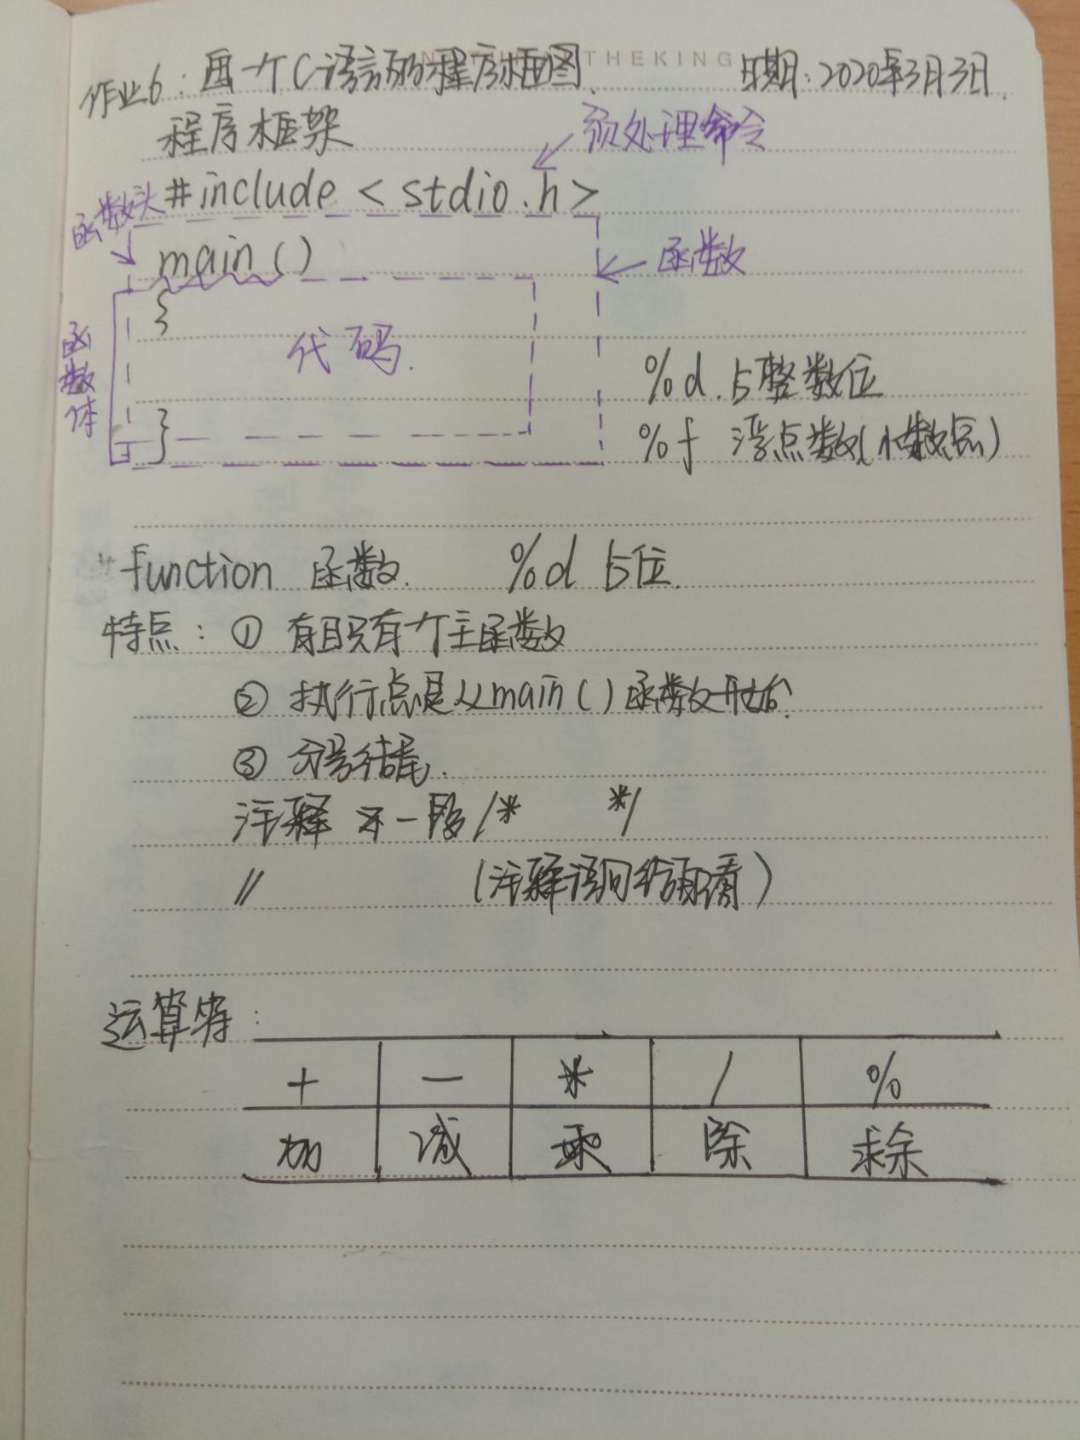 作业6：画一个C语言的程序框图. 日期：2020年3月3日.
THEKING
程序框架
预处理命令
函数头 #include <stdio.h>
main()
函数
{
代码.
函数体
%d.占整数位
}
%f 浮点数(小数点后)
function 函数. %d 占位.
特点：① 有且只有一个主函数
② 执行点是从main()函数开始.
③ 分号结尾.
注释 一段 /* */
// (注释语句给 看)
运算符：
+ — * / %
加 减 乘 除 求余